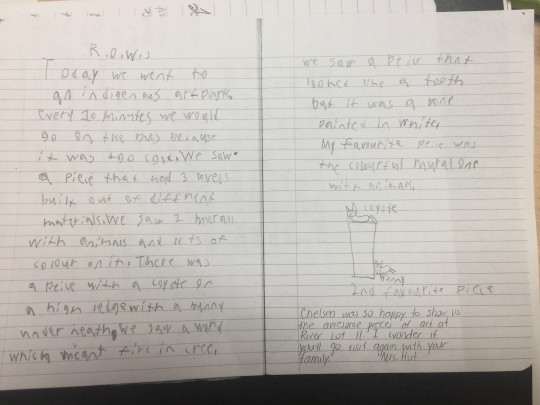 R.O.W.s
Today we went to
an indigenous art park,
every 10 minutes we would
go on the bus because
it was too cold. We saw
a piece that had 3
built out of different
materials. We saw 2 murals
with animals and lots of
colour on it. There was
a peise with a coyote on
a high ledge with a bunny
under neath. We saw a word
which meant fire in cree.
we saw a peise that
looked like a tooth
but it was a
painted in white,
My favourite peise was
the colourful mural one
with animals
coyote
bunny
2nd favourite piece
Chelsea was so happy to show us
the awesome pieces of art at
River Lot 11. I wonder if
you'll go visit again with your
family Mrs. Hut